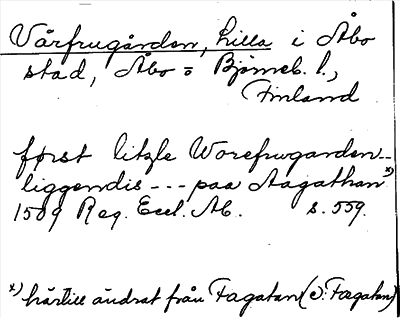 Vårfrugården, Lilla i Åbo
stad, Åbo = Bjørneb. l.,
Finland
først litzle Worefrwgarden --
liggendis --- paa Aagathan *)
1509 Reg. Eccl. Ab. s. 559.
*) härtill ändrat från Fagatan (ɔ: Faegatan)